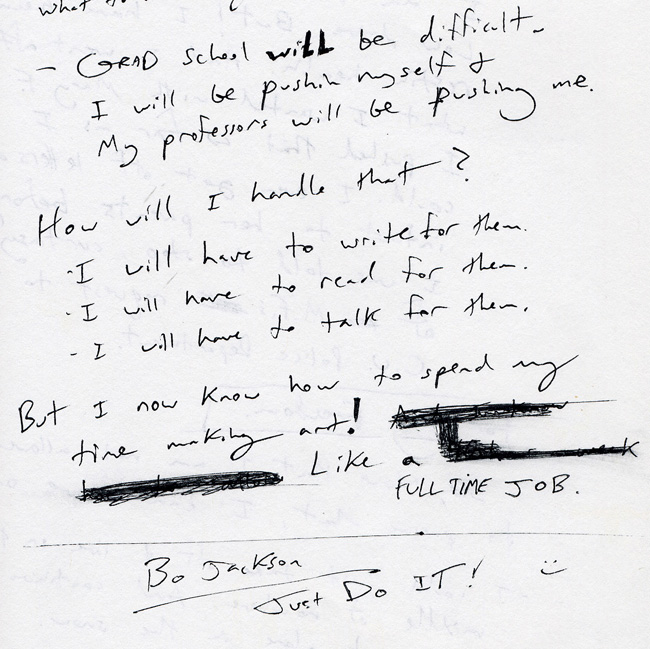 what to
- GRAD school will be difficult.
I will be pushin myself &
My professors will be pushing me.
How will I handle that?
- I will have to write for them.
- I will have to read for them.
- I will have to talk for them.
But I now know how to spend my
time making art!
Like a
FULL TIME JOB.
Bo Jackson
Just Do IT! :)